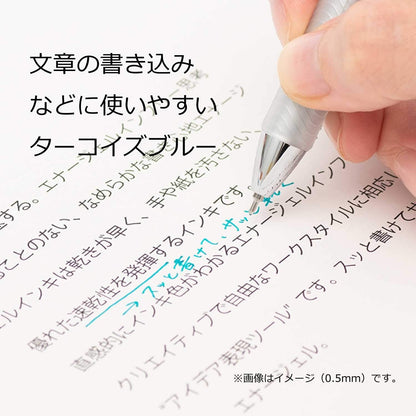 文章の書き込み
などに使いやすい
ターコイズブルー
エナージェルインフリー思考
する。エナージェルイン
ことのない、なめらかな書き心地エナージ
ルインキは乾きが早く、手や紙を汚さない
優れた速乾性を発揮するインキです。
→スッと書けて、サッと乾く
直感的にインキ色がわかるエナージェルインフ
クリエイティブで自由なワークスタイルに相応し
"アイデア表現ツール"です。スッと書けてサ
エナージェル。
※画像はイメージ（0.5mm）です。